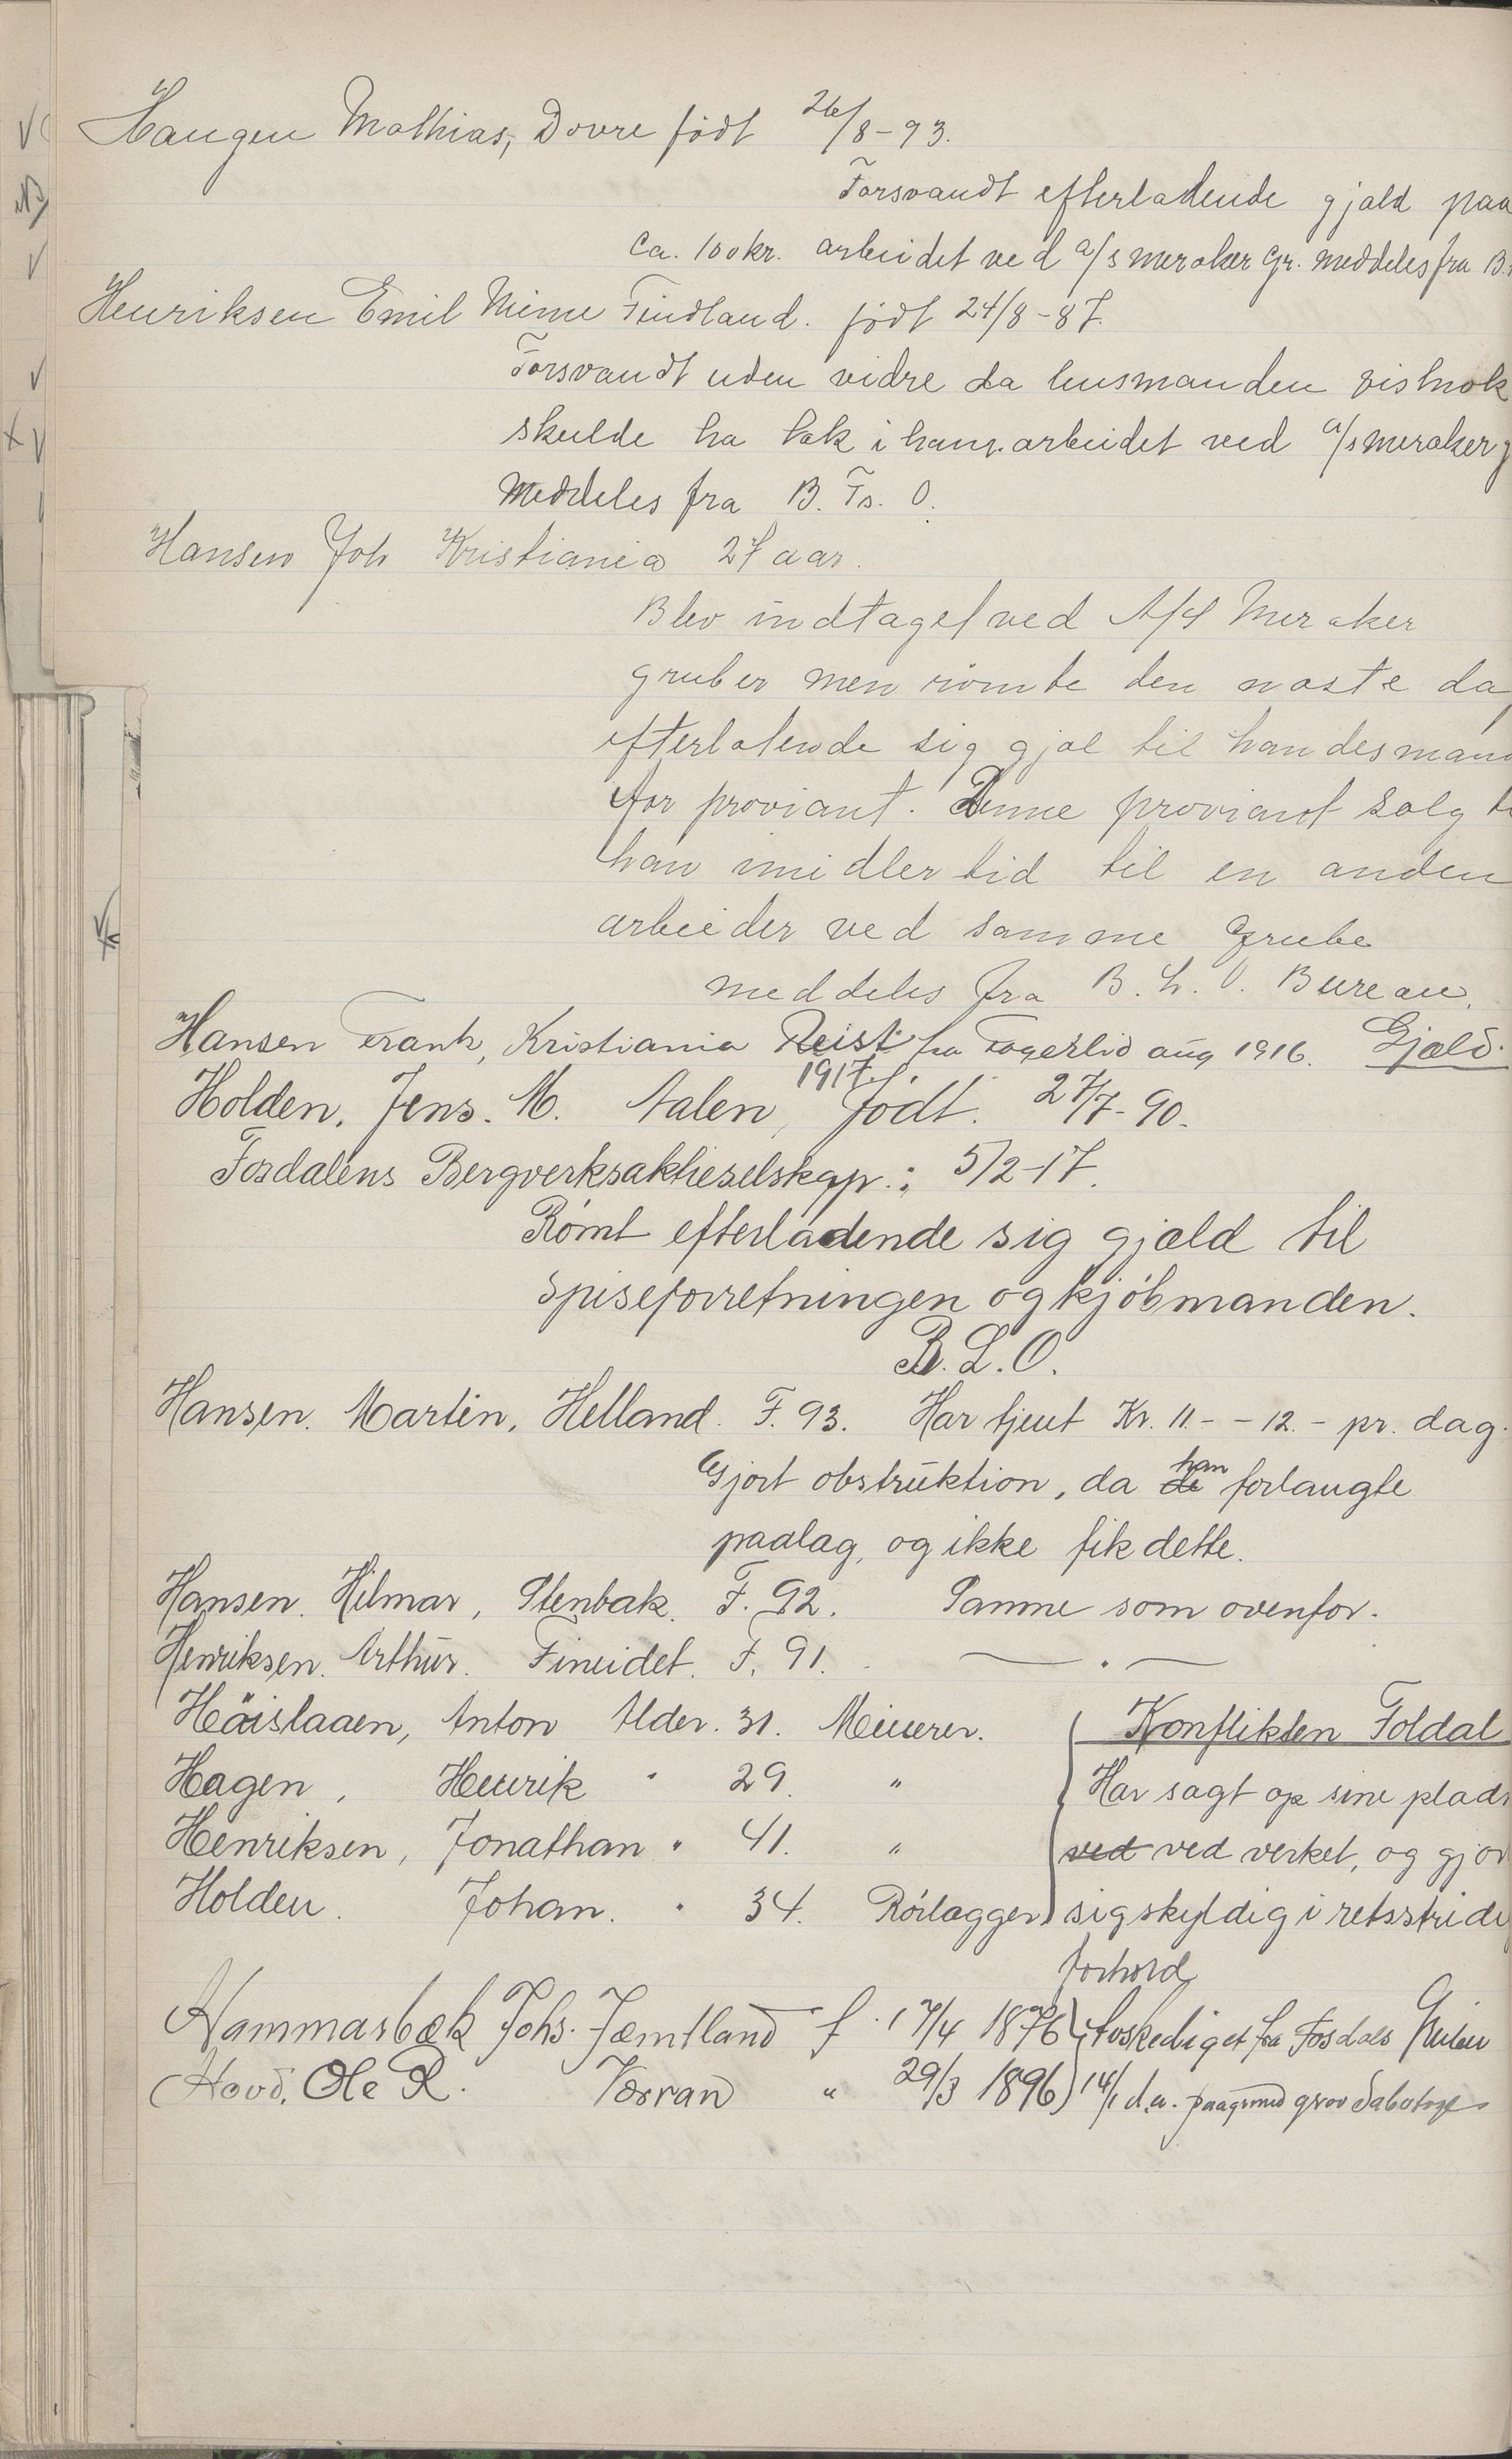 Haugen Mathias, Dovre födt 26/8-93.
Forsvandt efterladende gjæld paa
ca. 100kr. arbeidet ved a/s meraker gr. meddeles fra B.
Henriksen Emil Mime Findland. födt 24/8-87.
Forsvandt uden vidre da husmanden vistnok
skulde ha tak i ham. arbeidet ved a/s meraker g
meddeles fra B. Ts. O.
Hansen Joh Kristiania 27 aar.
Blev indtaget ved A/S Meraker
gruber men römte den næste da
efterlatende sig gjæl til handesmand
for proviant. Denne proviant solg t
han imidlertid til en anden
arbeider ved samme Grube
meddeles fra B. L. O. Bureau.
Hansen Frank, Kristiania Reist fra Fagerlid aug 1916. Gjæld.
1917.
Holden, Jens. M. Aalen, födt. 27/7-90.
Fosdalens Bergverksaktieselskap.: 5/2-17.
Rømt efterladende sig gjæld til
Spiseforretningen og kjøbmanden.
B. L. O.
Hansen. Martin, Helland. F. 93. Har tjent Kr. 11.- - 12.- pr. dag.
Gjort obstruktion, da de han forlangte
paalag, og ikke fik dette.
Hansen. Hilmar, Stenbak. F. 92. Samme som ovenfor.
Henriksen. Arthur. Fineidet. F. 91. — . —
Høislaaen, Anton Alder. 31. Minerer. Konflikten Foldal
Hagen, Henrik " 29. " Har sagt op sine plads
Henriksen, Jonathan " 41. " ved ved verket, og gjor
Holden. Johan. " 34. Rörlægger sig skyldig i retsstridi
forhold
Hammarbæk Johs. Jæmtland f. 17/4 1876 Avskediget fra Fosdals Gruber
Hovd, Ole R. Værran " 29/3 1896 14/1 d.a. paagrund grov Sabotage